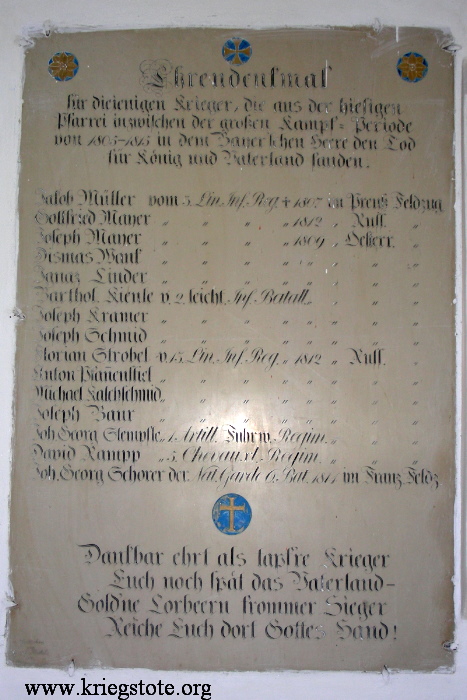 Ehrendenkmal
für diejenigen Krieger, die aus der hiesigen
Pfarrei inzwischen der großen Kampf-Periode
von 1805-1815 in dem Bayer'schen Heere den Tod
für König und Vaterland fanden.
Jakob Müller vom 3. Lin. Inf. Reg. † 1807 im Preuß. Feldzug
Gottfried Mayer " " " " 1812 " Russ. "
Joseph Mayer " " " " 1809 " Oesterr. "
Dismas " " " " " " "
Ignaz Linder " " " " " " "
Barthol. Kienle v. 2. leicht. Inf. Batall. " " " "
Joseph Kramer " " " " " " "
Joseph Schmid " " " " " " "
Florian Strobel v. 13. Lin. Inf. Reg. " 1812 " Russ. "
Anton Pfauenstiel " " " " " " "
Michael Kaltschmid " " " " " " "
Joseph Baur " " " " " " "
Joh. Georg Stempfle " 1. Artill. Fuhrw. Regim. " " "
David Rampp " 5. Chevauxl. Regim. " " "
Joh. Georg Schorer der Nat. Garde 6. Bat. im Franz. Feldz.
Dankbar ehrt als tapfre Krieger
Euch noch spät das Vaterland-
Goldne Lorbeern frommer Sieger
Reiche Euch dort Gottes Hand!
www.kriegstote.org